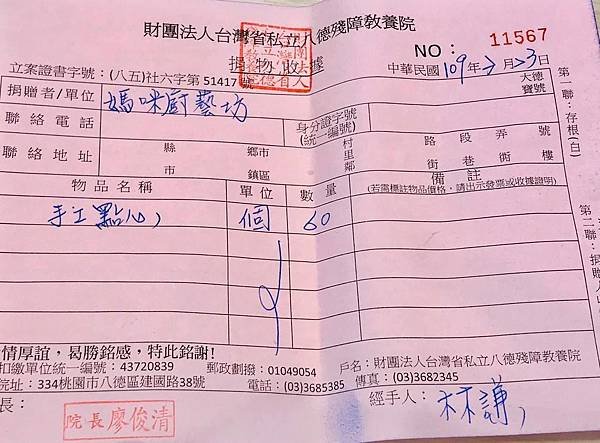 財團法人台灣省私立八德殘障教養院
捐物收據
NO： 11567
立案證書字號：(八五)社六字第51417號
中華民國109年 月 3日
捐贈者/單位 媽咪廚藝坊
大德
寶號
聯絡電話
身分證字號
(統一編號)
聯絡地址 縣 鄉市 村里鄰 路段弄號
市 鎮區 街巷衖樓
物品名稱 單位 數量 備註
(若需標註物品價格，請出示發票或收據證明)
手工點心 個 60
情厚誼，曷勝銘感，特此銘謝!
扣繳單位統一編號：43720839 郵政劃撥：01049054 戶名：財團法人台灣省私立八德殘障教養院
院址：334桃園市八德區建國路38號 電話：(03)3685385 傳真：(03)3682345
長： 院長廖俊清 經手人： 林謙
第一聯：存根(白)
第二聯：捐贈人